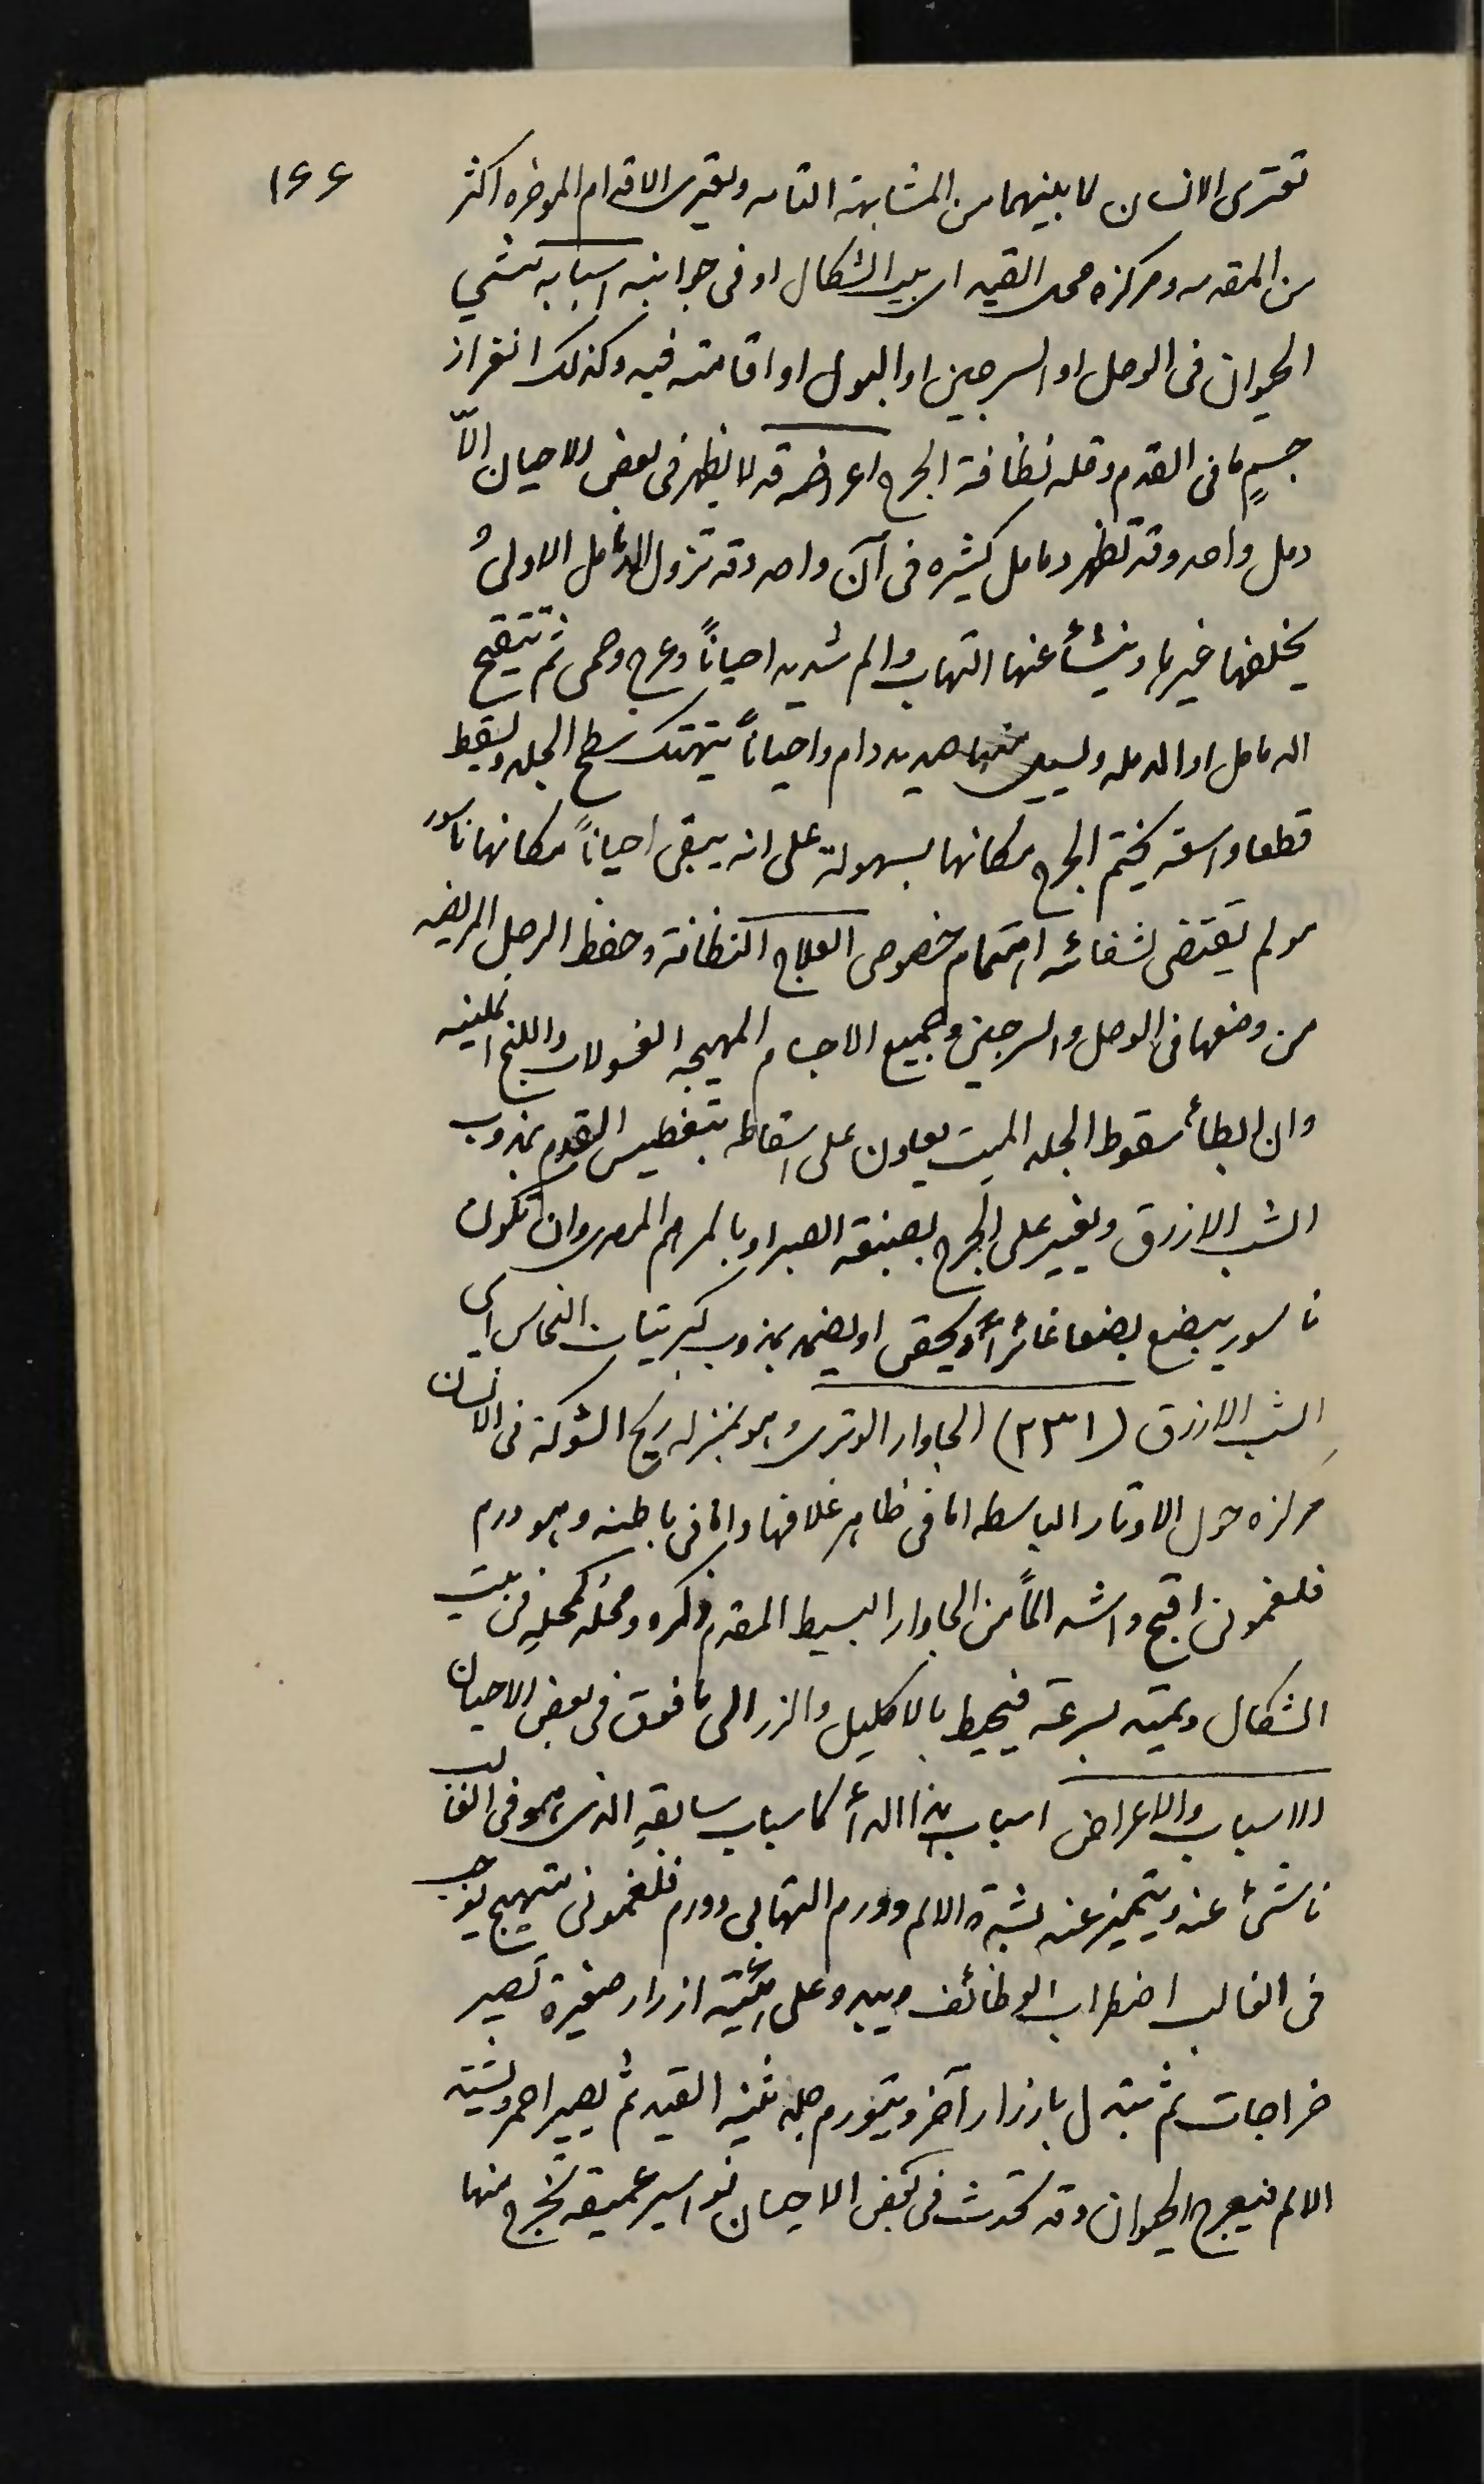 ١٤٤
تعترى الانسان لما بينهما من المشابهة التامه ويعترى الاقدام الموخره اكثر
من المقدمه ومركزه محل القيد اى بيت الشكال او فى جوانبه اسبابه تمشي
الحيوان فى الوحل او السرجين او البول او اقامته فيه وكذلك انغراز
جسمٍ ما فى القدم وقله نظافة الجرح اعراضه قد لا يظهر فى بعض الاحيان الاّ
دمل واحد وقد تظهر دمامل كثيره فى آن واحد وقد تزول الدمامل الاولى و
يخلفها غيرها وينشأ عنها التهاب والم شديد احياناً وعرج وحمى ثم تتقيح
الدمامل او الدمله ويسيل منها صديد دام واحياناً يتهتك سطح الجلد ويسقط
قطعا واسعة فيختم الجرح مكانها بسهولة على انه يبقى احياناً مكانها ناسور
ولم يقتضى لشفائه اهتمام خصوصى العلاج النظافة وحفظ الرجل المريضه
من وضعها فى الوحل والسرجين وجميع الاجسام المهيجه الغسولات واللبخ الملينه
وان ابطأ سقوط الجلد الميت يعاون على اسقاطه بتغطيس القدم بمذوب
الشب الازرق ويغير على الجرح بصبغة الصبر او بالمرهم المصرى وان تكون
ناسور يبضع بضعا غائراً ويحقن او يضمد بمذوب كبريتات النحاس اى
الشب الازرق (٢٣١) الجاوار الوترى وهو بمنزله ريح الشوكة فى الانسان
مركزه حول الاوتار الباسطه اما فى ظاهر غلافها واما فى باطنه وهو ورم
فلغمونى اقبح واشد الماً من الجاوار البسيط المقدم ذكره ومحله كمحله فى بيت
الشكال ويمتد بسرعة فيحيط بالاكليل والزر الى ما فوق فى بعض الاحيان
الاسباب والاعراض اسباب هذا الدأ كاسباب سابقه الذى هو فى الغالب
ناشئ عنه ويتميز عنه بشدة الالم وورم التهابى وورم فلغمونى متهيج يوجب
فى الغالب اضطراب الوظائف ويبدو على ازرار صغيرة تصير
خراجات ثم تبدل بازرار آخر ويتورم جلد ثنية القيد ثم يصير احمر ويشتد
الالم فيعرج الحيوان وقد تحدث فى بعض الاحيان نواسير عميقه تخرج منها